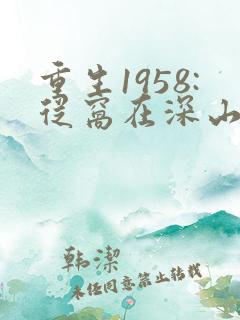 重生1958:
从窝在深山
韩潔
未任同意禁止转载